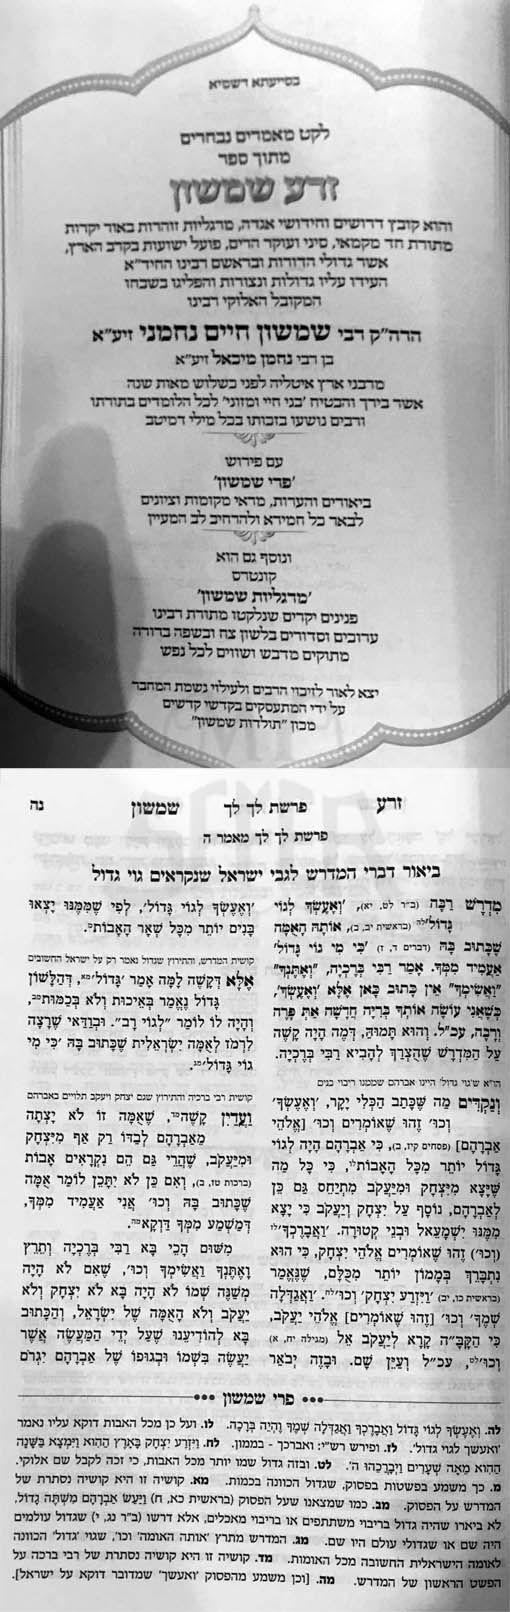 בסייעתא דשמיא
לקט מאמרים נבחרים
מתוך ספר
זרע שמשון
והוא קובץ דרושים וחידושי אגדה, מרגליות זוהרות באור יקרות
מתורת חד מקמאי, סיני ועוקר הרים, פועל ישועות בקרב הארץ,
אשר גדולי הדורות ובראשם רבינו החיד"א
העידו עליו גדולות ונצורות והפליגו בשבחו
המקובל האלוקי רבינו
הרה"ק רבי שמשון חיים נחמני זיע"א
בן רבי נחמן מיכאל זיע"א
מרבני ארץ איטליה לפני כשלוש מאות שנה
אשר בירך והבטיח 'בני חיי ומזוני' לכל הלומדים בתורתו
ורבים נושעו בזכותו בכל מילי דמיטב
עם פירוש
'פרי שמשון'
ביאורים והערות, מראי מקומות וציונים
לבאר כל חמירא ולהרחיב לב המעיין
ונוסף גם הוא
קונטרס
'מרגליות שמשון'
פנינים יקרים שנלקטו מתורת רבינו
ערוכים וסדורים בלשון צח ובשפה ברורה
מתוקים מדבש ושווים לכל נפש
יצא לאור לזיכוי הרבים ולעילוי נשמת המחבר
על ידי המתעסקים בקדשי קדשים
מכון "תולדות שמשון"
זרע פרשת לך לך שמשון נה
פרשת לך לך מאמר ה
ביאור דברי המדרש לגבי ישראל שנקראים גוי גדול
מִדְרָשׁ רַבָּה (ב"ר לט, יא), 'וְאֶעֶשְׂךָ לְגוֹי
גָּדוֹל'לה (בראשית יב, ב), אוֹתָהּ הָאֻמָּה
שֶׁכָּתוּב בָּהּ (דברים ד, ז) 'כִּי מִי גוֹי גָּדוֹל'
אַעֲמִיד מִמְּךָ. אָמַר רַבִּי בֶּרֶכְיָה, "וְאֶתֶּנְךָ"
"וַאֲשִׂימְךָ" אֵין כְּתוּב כָּאן אֶלָּא 'וְאֶעֶשְׂךָ',
כְּשֶׁאֲנִי עוֹשֶׂה אוֹתְךָ בְּרִיָּה חֲדָשָׁה אַתְּ פָּרֶה
וְרָבֶה, עכ"ל. וְהוּא תָּמוּהַּ, דְּמֶה הָיָה קָשֶׁה
עַל הַמִּדְרָשׁ שֶׁהֻצְרַךְ לְהָבִיא רַבִּי בֶּרֶכְיָה.
הו"א ש'גוי גדול' היינו אברהם שממנו ריבוי בנים
וְנַקְדִּים מַה שֶּׁכָּתַב הַכְּלִי יָקָר, 'וְאֶעֶשְׂךָ'
וכו' זֶהוּ שֶׁאוֹמְרִים וכו' [אֱלֹהֵי
אַבְרָהָם] (פסחים קיז, ב), כִּי אַבְרָהָם הָיָה לְגוֹי
גָּדוֹל יוֹתֵר מִכָּל הָאָבוֹתלו, כִּי כָּל מַה
שֶּׁיָּצָא מִיִּצְחָק וּמִיַּעֲקֹב מִתְיַחֵס גַּם כֵּן
לְאַבְרָהָם, נוֹסָף עַל יִצְחָק וְיַעֲקֹב כִּי יָצָא
מִמֶּנּוּ יִשְׁמָעֵאל וּבְנֵי קְטוּרָה. 'וַאֲבָרֶכְךָ'לז
(וכו') זֶהוּ שֶׁאוֹמְרִים אֱלֹהֵי יִצְחָק, כִּי הוּא
נִתְבָּרֵךְ בְּמָמוֹן יוֹתֵר מִכֻּלָּם, שֶׁנֶּאֱמַר
(בראשית כו, יב) 'וַיִּזְרַע יִצְחָק' וכו'לח. 'וַאֲגַדְּלָה
שְׁמֶךָ' וכו' [זֶהוּ שֶׁאוֹמְרִים] אֱלֹהֵי יַעֲקֹב,
כִּי הַקָּבָּ"ה קָרָא לְיַעֲקֹב אֵל (מגילה יח, א)
וכו'לט, עכ"ל וְעַיֵּן שָׁם. וּבָזֶה יְבֹאַר
'וְאֶעֶשְׂךָ לְגוֹי גָּדוֹל', לְפִי שֶׁמִּמֶּנּוּ יָצְאוּ
בָּנִים יוֹתֵר מִכָּל שְׁאָר הָאָבוֹתמ.
קושית המדרש, והתירוץ שגדול נאמר רק על ישראל החשובים
אֶלָּא דְּקָשֶׁה לָמָּה אָמַר 'גָּדוֹל'מא, דְּהַלָּשׁוֹן
גָּדוֹל נֶאֱמַר בְּאֵיכוּת וְלֹא בְּכַמּוּתמב,
וְהָיָה לוֹ לוֹמַר "לְגוֹי רָב". וּבְוַדַּאי שֶׁרָצָה
לִרְמֹז לְאֻמָּה יִשְׂרְאֵלִית שֶׁכָּתוּב בָּהּ 'כִּי מִי
גוֹי גָּדוֹל'מג.
קושית רבי ברכיה והתירוץ שגם יצחק ויעקב תלויים באברהם
וַעֲדַיִן קָשֶׁהמד, שֶׁאֻמָּה זוֹ לֹא יָצְתָה
מֵאַבְרָהָם לְבַדּוֹ רַק אַף מִיִּצְחָק
וּמִיַּעֲקֹב, שֶׁהֲרֵי גַּם הֵם נִקְרָאִים אָבוֹת
(ברכות טז, ב), וְאִם כֵּן לֹא יִתָּכֵן לוֹמַר אֻמָּה
שֶׁכָּתוּב בָּהּ וכו' אֲנִי אַעֲמִיד מִמְּךָ,
דְּמַשְׁמַע מִמְּךָ דַּוְקָאמה.
מִשּׁוּם הָכֵי בָּא רַבִּי בֶּרֶכְיָה וְתֵרֵץ
וְאֶתֶּנְךָ וַאֲשִׂימְךָ וכו', שֶׁאִם לֹא הָיָה
מְשַׁנֶּה שְׁמוֹ לֹא הָיָה בָּא לֹא יִצְחָק וְלֹא
יַעֲקֹב וְלֹא הָאֻמָּה שֶׁל יִשְׂרָאֵל, וְהַכָּתוּב
בָּא לְהוֹדִיעֵנוּ שֶׁעַל יְדֵי הַמַּעֲשֶׂה אֲשֶׁר
יַעֲשֶׂה בִּשְׁמוֹ וּבְגוּפוֹ שֶׁל אַבְרָהָם יִגְרֹם
פרי שמשון
לה. וְאֶעֶשְׂךָ לְגוֹי גָּדוֹל וַאֲבָרֶכְךָ וַאֲגַדְּלָה שְׁמֶךָ וֶהְיֵה בְּרָכָה. לו. ועל כן מכל האבות דוקא עליו נאמר
'ואעשך לגוי גדול'. לז. ופירש רש"י: ואברכך - בממון. לח. וַיִּזְרַע יִצְחָק בָּאָרֶץ הַהִוא וַיִּמְצָא בַּשָּׁנָה
הַהִוא מֵאָה שְׁעָרִים וַיְבָרֲכֵהוּ ה'. לט. ובזה גדול שמו יותר מכל האבות, כי זכה לקבל שם אלוקי.
מ. כך משמע בפשטות בפסוק, שגדול הכוונה בכמות. מא. קושיה זו היא קושיה נסתרת של
המדרש על הפסוק. מב. כמו שמצאנו שעל הפסוק (בראשית כא, ח) וַיַּעַשׂ אַבְרָהָם מִשְׁתֶּה גָדוֹל,
לא ביארו שהיה גדול בריבוי משתתפים או בריבוי מאכלים, אלא דרשו (ב"ר נג, י) שגדול עולמים
היה שם או שגדולי עולם היו שם. מג. המדרש מתרץ 'אותה האומה' וכו', שגוי 'גדול' הכוונה
לאומה הישראלית החשובה מכל האומות. מד. קושיה זו היא קושיה נסתרת של רבי ברכה על
הפשט הראשון של המדרש. מה. [וכן משמע מהפסוק 'ואעשך' שמדובר דוקא על ישראל].